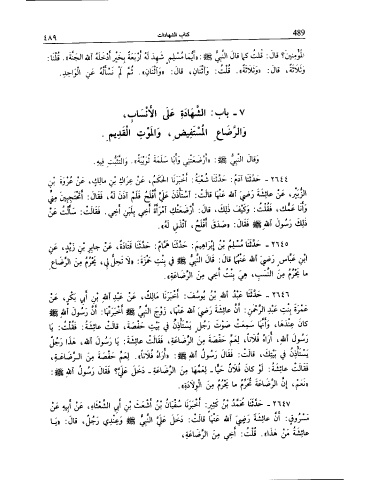 ٤٨٩ كتاب الشهادات 489
المُؤْمِنِينَ؟ قالَ: قُلْتُ كما قالَ النَّبِيُّ ﷺ: «أَيُّمَا مُسْلِمٍ شَهِدَ لَهُ أَرْبَعَةٌ بِخَيْرٍ أَدْخَلَهُ اللهُ الجَنَّةَ». قُلْنَا:
وَثَلاثَةٌ، قالَ: «وَثَلاثَةٌ». قُلْتُ: وَاثْنانِ، قالَ: «وَاثْنانِ». ثُمَّ لَمْ نَسْأَلْهُ عَنِ الْوَاحِدِ.
٧ - باب: الشَّهَادَةِ عَلَى الأَنْسَابِ،
وَالرَّضَاعِ المُسْتَفِيضِ، وَالمَوْتِ الْقَدِيمِ.
وَقَالَ النَّبِيُّ ﷺ: «أَرْضَعَتْنِي وَأَبَا سَلَمَةَ ثُوَيْبَةُ». وَالتَّثَبُّتِ فِيهِ.
٢٦٤٤ - حَدَّثَنَا آدَمُ: حَدَّثَنَا شُعْبَةُ: أَخْبَرَنَا الحَكَمُ، عَنْ عِرَاكِ بْنِ مالِكٍ، عَنْ عُرْوَةَ بْنِ
الزُّبَيْرِ، عَنْ عائِشَةَ رَضِيَ اللهُ عَنْهَا قالَتِ: اسْتَأْذَنَ عَلَيَّ أَفْلَحُ فَلَمْ آذَنْ لَهُ، فَقَالَ: أَتَحْتَجِبِينَ مِنِّي
وَأَنَا عَمُّكِ، فَقُلْتُ: وَكَيْفَ ذٰلِكَ، قالَ: أَرْضَعَتْكِ امْرَأَةُ أَخِي بِلَبَنِ أَخِي. فَقَالَتْ: سَأَلْتُ عَنْ
ذٰلِكَ رَسُولَ اللهِ ﷺ فَقَالَ: «صَدَقَ أَفْلَحُ، ائْذَنِي لَهُ».
٢٦٤٥ - حَدَّثَنَا مُسْلِمُ بْنُ إِبْرَاهِيمَ: حَدَّثَنَا هَمَّامٌ: حَدَّثَنَا قَتَادَةُ، عَنْ جابِرِ بْنِ زَيْدٍ، عَنِ
ابْنِ عَبَّاسٍ رَضِيَ اللهُ عَنْهُمَا قالَ: قالَ النَّبِيُّ ﷺ في بِنْتِ حَمْزَةَ: «لَا تَحِلُّ لِي، يَحْرُمُ مِنَ الرَّضَاعِ
ما يَحْرُمُ مِنَ النَّسَبِ، هِيَ بِنْتُ أَخِي مِنَ الرَّضَاعَةِ».
٢٦٤٦ - حَدَّثَنَا عَبْدُ اللهِ بْنُ يُوسُفَ: أَخْبَرَنَا مالِكٌ، عَنْ عَبْدِ اللهِ بْنِ أَبِي بَكْرٍ، عَنْ
عَمْرَةَ بِنْتِ عَبْدِ الرَّحْمٰنِ: أَنَّ عائِشَةَ رَضِيَ اللهُ عَنْهَا، زَوْجَ النَّبِيِّ ﷺ أَخْبَرَتْهَا: أَنَّ رَسُولَ اللهِ ﷺ
كانَ عِنْدَهَا، وَأَنَّهَا سَمِعَتْ صَوْتَ رَجُلٍ يَسْتَأْذِنُ في بَيْتِ حَفْصَةَ. قالَتْ عائِشَةُ: فَقُلْتُ: يَا
رَسُولَ اللهِ، أُرَاهُ فُلاناً، لِعَمِّ حَفْصَةَ مِنَ الرَّضَاعَةِ. فَقَالَتْ عائِشَةُ: يَا رَسُولَ اللهِ، هٰذَا رَجُلٌ
يَسْتَأْذِنُ في بَيْتِكَ، قالَتْ: فَقَالَ رَسُولُ اللهِ ﷺ: «أُرَاهُ فُلاناً». لِعَمِّ حَفْصَةَ مِنَ الرَّضَاعَةِ،
فَقَالَتْ عائِشَةُ: لَوْ كانَ فُلانٌ حَيًّا - لِعَمِّهَا مِنَ الرَّضَاعَةِ - دَخَلَ عَلَيَّ؟ فَقَالَ رَسُولُ اللهِ ﷺ:
«نَعَمْ، إِنَّ الرَّضَاعَةَ تُحَرِّمُ ما يَحْرُمُ مِنَ الْوِلادَةِ».
٢٦٤٧ - حَدَّثَنَا مُحَمَّدُ بْنُ كَثِيرٍ: أَخْبَرَنَا سُفْيَانُ، عَنْ أَشْعَثَ بْنِ أَبِي الشَّعْثَاءِ، عَنْ أَبِيهِ عَنْ
مَسْرُوقٍ: أَنَّ عائِشَةَ رَضِيَ اللهُ عَنْهَا قالَتْ: دَخَلَ عَلَيَّ النَّبِيُّ ﷺ وَعِنْدِي رَجُلٌ، قالَ: «يَا
عائِشَةُ مَنْ هٰذَا». قُلْتُ: أَخِي مِنَ الرَّضَاعَةِ،